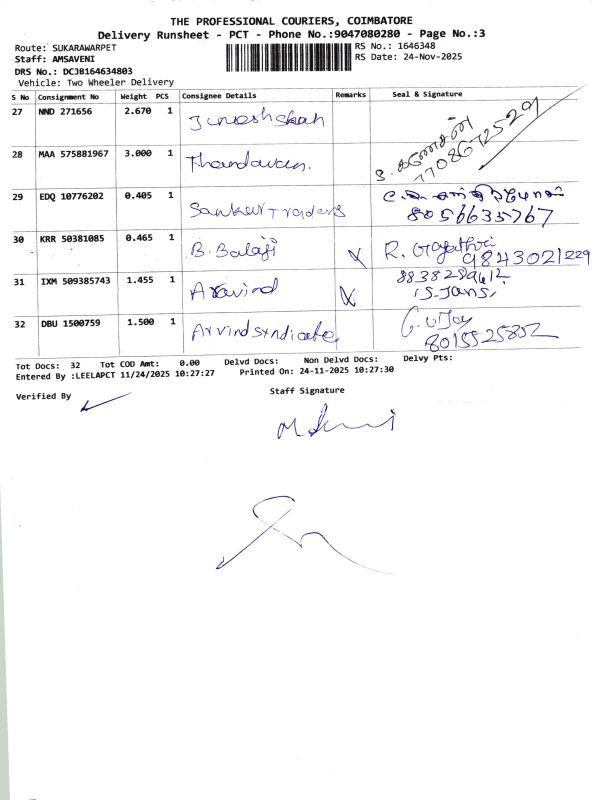 THE PROFESSIONAL COURIERS, COIMBATORE
Delivery Runsheet - PCT - Phone No.:9047080280 - Page No.:3
Route: SUKARAWARPET RS No.: 1646348
Staff: AMSAVENI RS Date: 24-Nov-2025
DRS No.: DCJB164634803
Vehicle: Two Wheeler Delivery
S No Consignment No Weight PCS Consignee Details Remarks Seal & Signature
27 NND 271656 2.670 1
28 MAA 575881967 3.000 1 Thandavan.
29 EDQ 10776202 0.405 1 Sankar Traders 8056635767
30 KRR 50381085 0.465 1 B. Balaji R. Gayathri 9843021229
31 IXM 509385743 1.455 1 Aravind
32 DBU 1500759 1.500 1 Arvind syndicate 8015525852
Tot Docs: 32 Tot COD Amt: 0.00 Delvd Docs: Non Delvd Docs: Delvy Pts:
Entered By :LEELAPCT 11/24/2025 10:27:27 Printed On: 24-11-2025 10:27:30
Staff Signature
Verified By